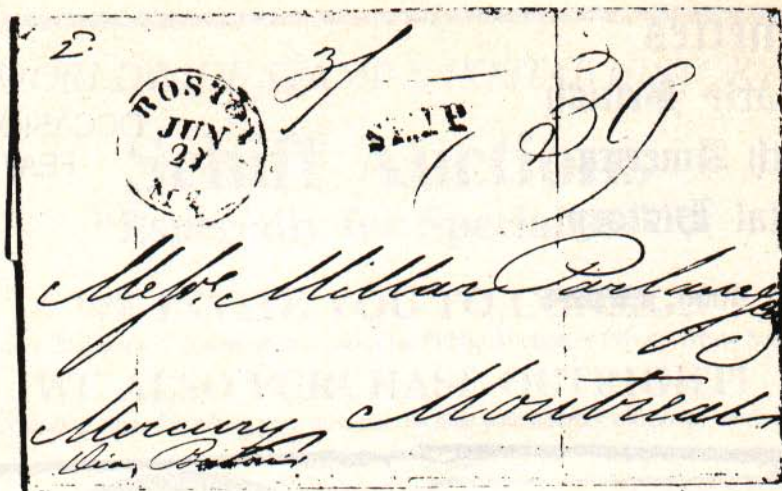 3/
BOSTON
JUN
21
MS
SHIP
39
Messrs. Millar Parlane
Montreal
Mercury
Via, Boston